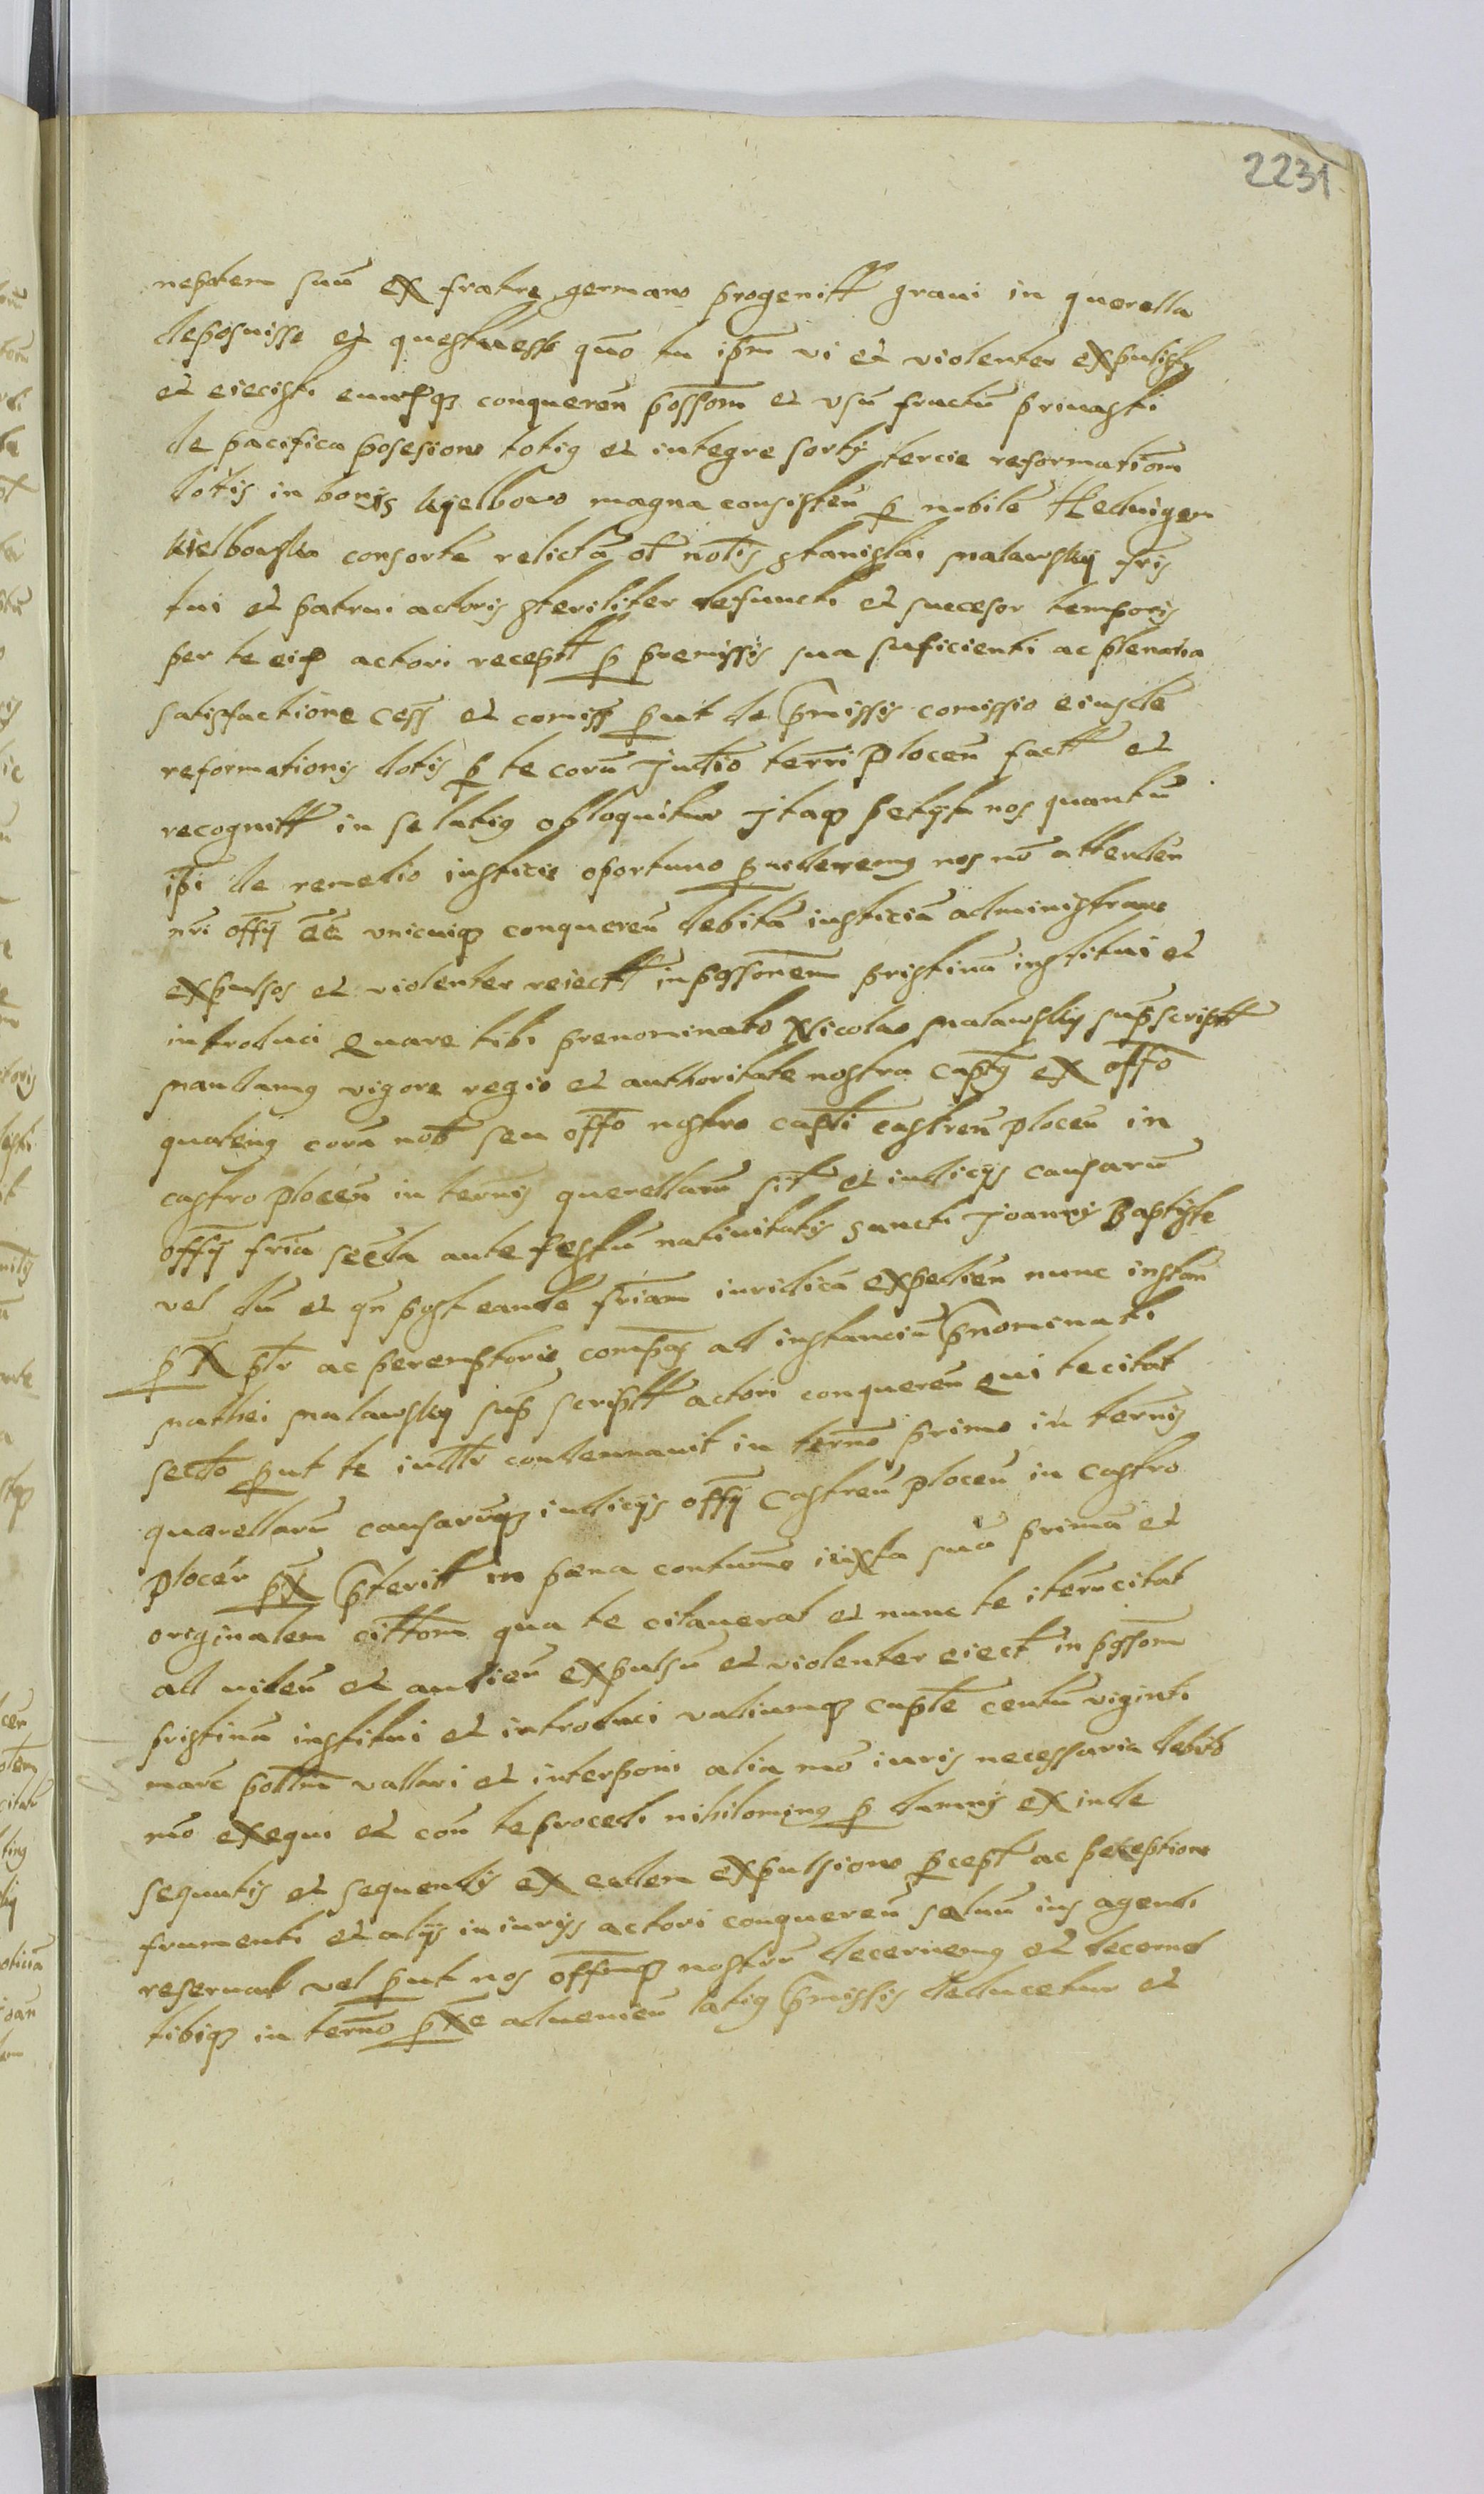 2231
nepotem suū ex fratre germano progenitt graui in querella
deposuisse et questus esse quō tu ipm vi et violenter expulisti
et eiecisti eumqꝫ conqueren̄ possom et vsu fructū priuasti
de pacifica posesione totiꝰ et integre sortis tercie reformationi
dotis in bonis kyelbowo magna consisteñ ꝑ nobilē Hedvigem
kielbowska consortē relictā ol nobis stanislai malawskij fris
tui et patrui actoris steriliter defuncti et succesor temporis
per te eid actori receptt ꝑ premissis sua suficienti ac plenaria
satisfactione cess et comiss ꝓut de p̄missis comissio eiusdē
reformationis dotis ꝑ te corā Judīo terri plocen̄ factt et
recognitt in se latiꝰ obloquitur Jtaqꝫ petijt nos quantū
ipi de remedio iusticie oportuno ꝓuideremꝰ nos nō attenden̄
nri offij ēē vnicuiqꝫ conqueren̄ debitā iusticiā administrare
expulsos et violenter reiectt in possonem pristinā institui et
introduci Quare tibi prenominato Nicolao malawskij supscriptt
mandamꝰ vigore regio et authoritate nostra capᵗⁱ ex offō
quatenꝰ corā nob seu offō nostro capti castren̄ plocen̄ in
castro plocen̄ in termis querellarū sit et iudicijs causarū
offij fria secda ante festū natiuitatis Sancti Joannis Baptiste
vel dū et qn post eandē friam iuridicā expedien̄ nunc instan̄
ꝓx ptr ac peremptorie compas ad instanciā p̄nominati
mathei malawskij sup scriptt actori conqueren̄ Qui te citat
secdo ꝓut te iudltr condemnauit in termō primo in termis
querellarū causarūqꝫ iudicijs offij Castren̄ plocen̄ in castro
plocen̄ ꝓx p̄teritt in pena contumē iuxta suā primā et
originalem cittom qua te citauerat et nunc te iterū citat
ad viden̄ et audien̄ expulsū et violenter eiect in possom
pristinā institui et introduci vadiumqꝫ captē centū viginti
marc pollm vallari et interponi alia mō iuris necessaria debito
mō exequi et con te procedi nihilominꝰ ꝑ damnis ex inde
sequutis et sequendis ex eadem expulsione ꝑcept ac perceptione
frumenti et alijs iniurijs actori conqueren̄ saluū ius agendi
reseruat vel ꝓut nos offmqꝫ nostrū decernemꝰ et decernet
tibiqꝫ in termō ꝓxe aduenien̄ latiꝰ p̄missis deducetur et